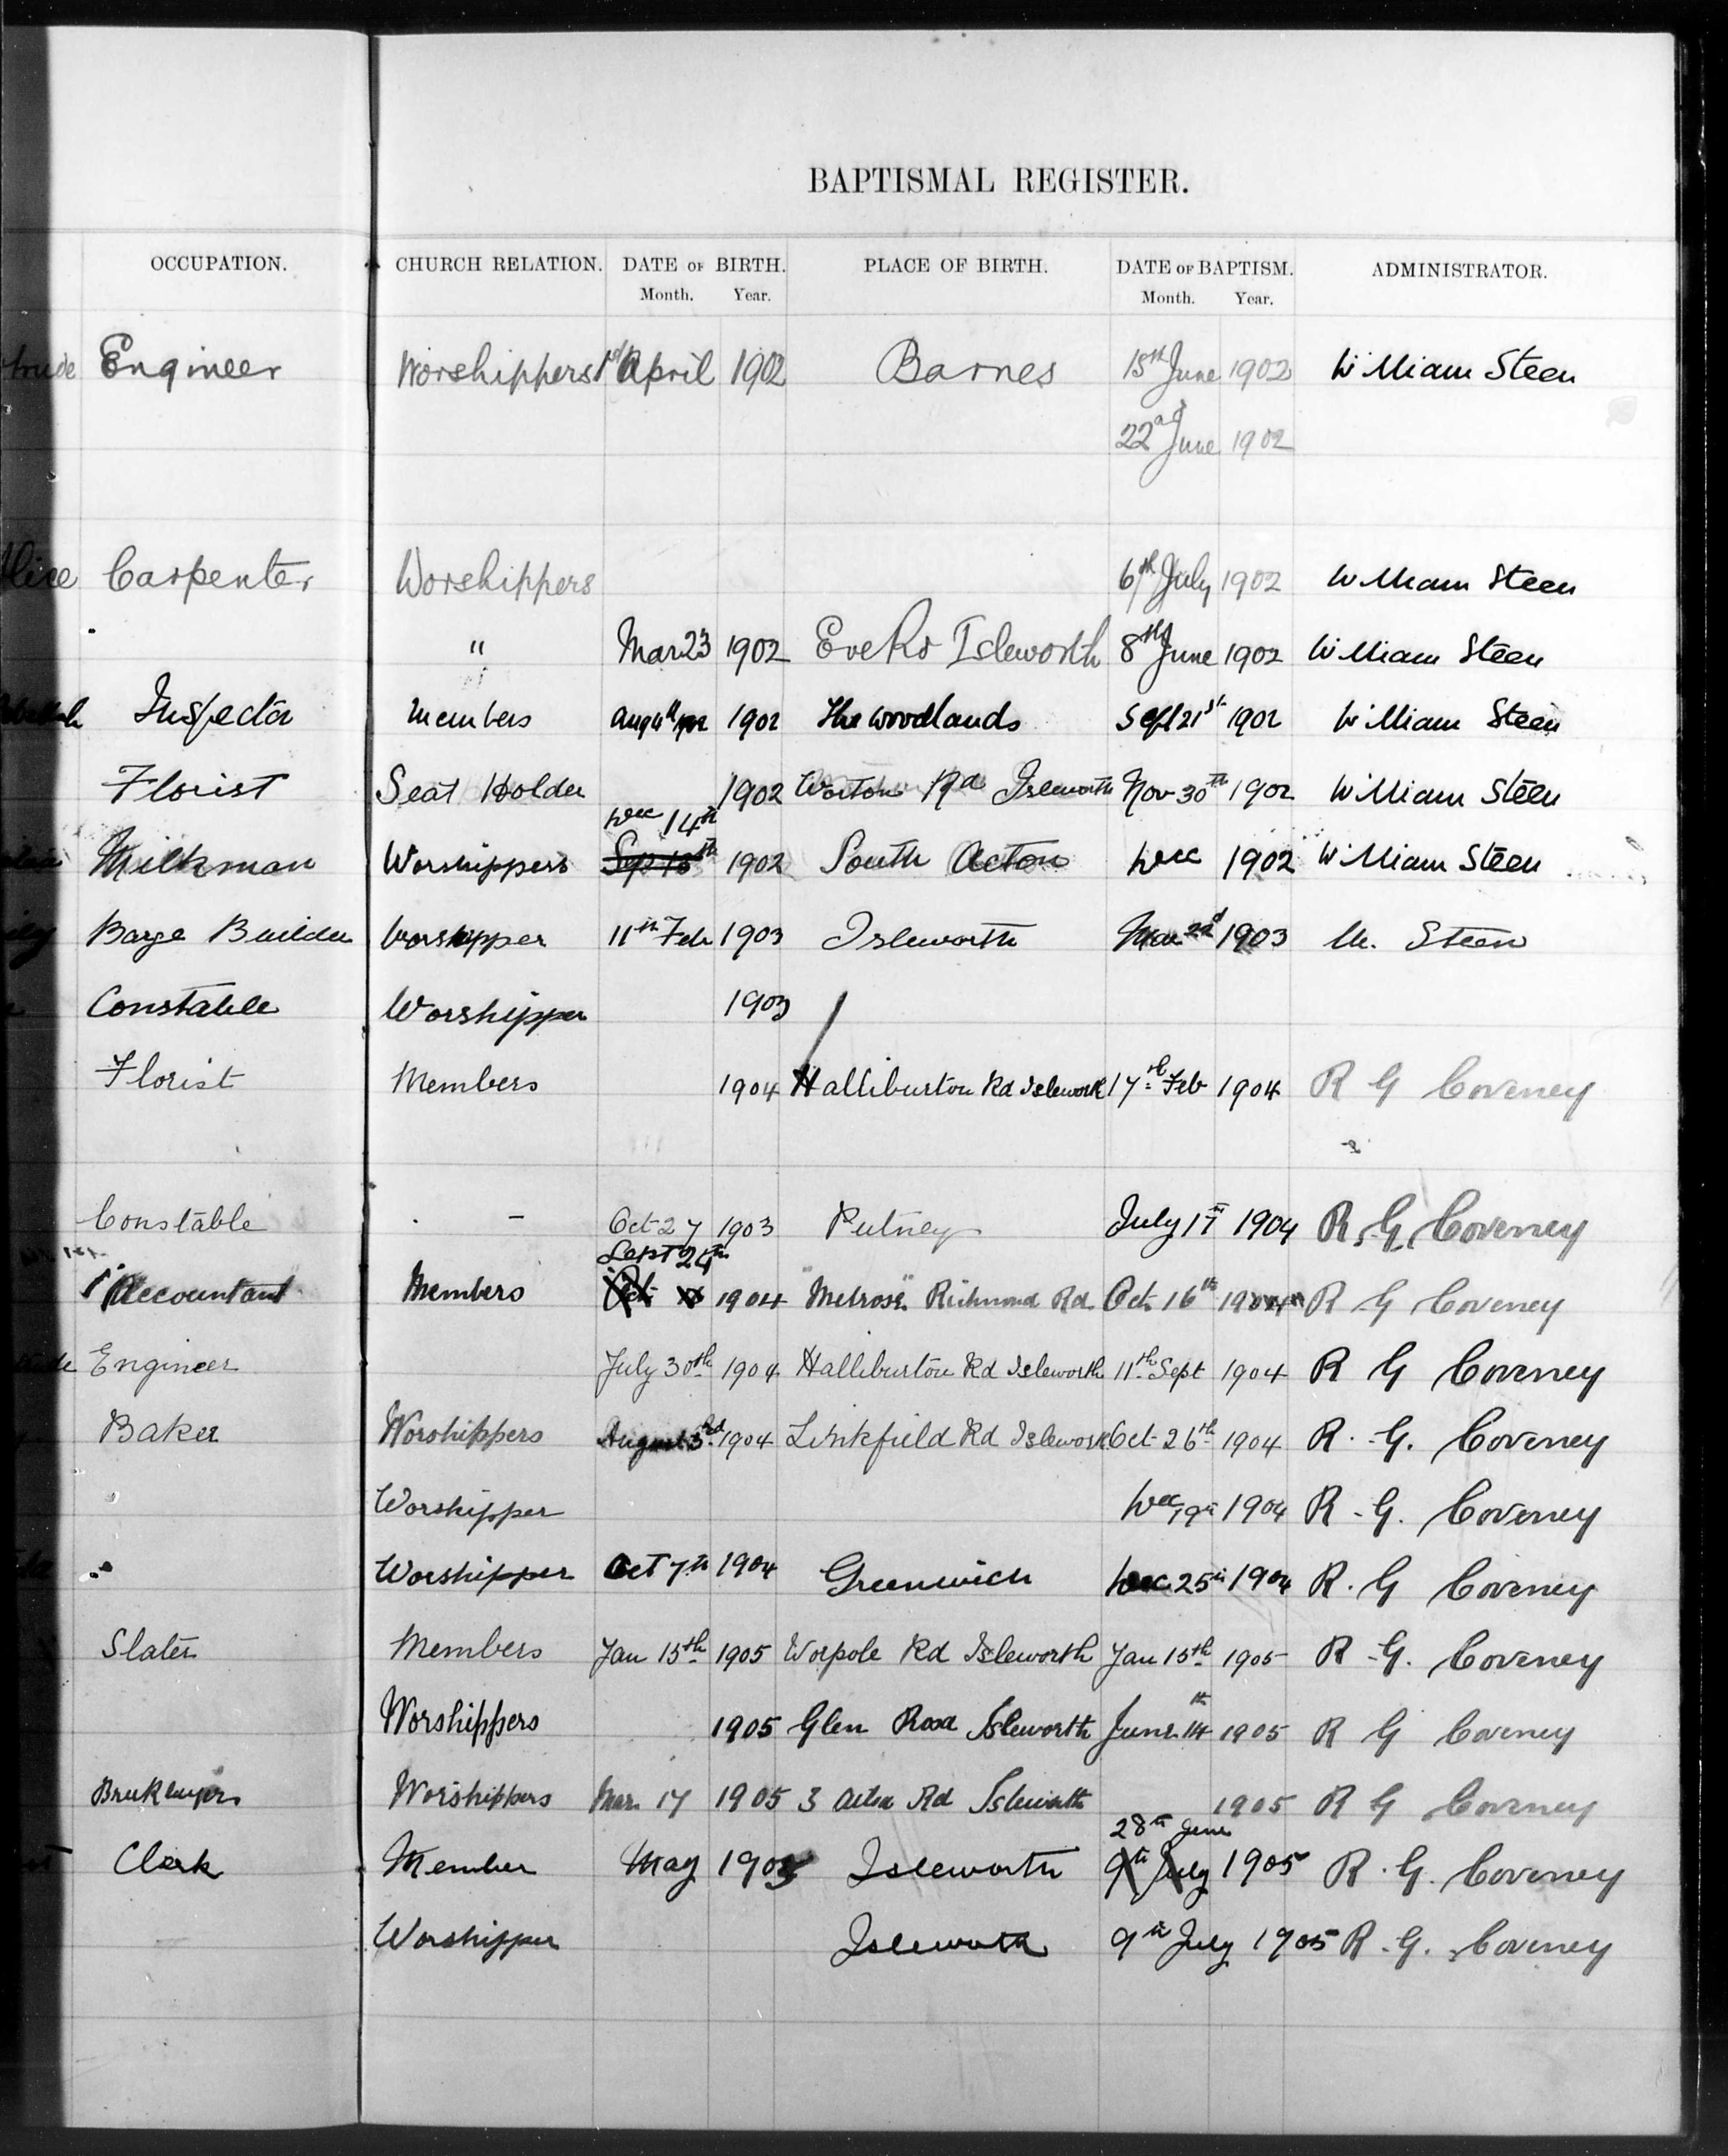 BAPTISMAL REGISTER.
OCCUPATION. CHURCH RELATION. DATE OF BIRTH. PLACE OF BIRTH. DATE OF BAPTISM. ADMINISTRATOR.
Month. Year. Month. Year.
Engineer Worshippers 1st April 1902 Barnes 15th June 1902 William Steen
22nd June 1902
Carpenter Worshippers 6th July 1902 William Steen
" Mar 23 1902 Eve Rd Isleworth 8th June 1902 William Steen
Inspector Members Aug 4th 1902 The Woodlands Sept 21st 1902 William Steen
Florist Seat Holder 1902 Worton Rd Isleworth Nov 30th 1902 William Steen
Dec 14th
Milkman Worshippers Sep 15th 1902 South Acton Dec 1902 William Steen
Barge Builder Worshipper 11th Feb 1903 Isleworth Mar 22d 1903 W. Steen
Constable Worshipper 1903
Florist Members 1904 Halliburton Rd Isleworth 17th Feb 1904 R G Coveney
Constable - Oct 27 1903 Putney July 17th 1904 R. G. Coveney
Sept 24th
Accountant Members Oct 1904 "Melrose" Richmond Rd. Oct 16th 1904 R G Coveney
Engineer July 30th 1904 Halliburton Rd Isleworth 11th Sept 1904 R G Coveney
Baker Worshippers August 3rd 1904 Linkfield Rd Isleworth Oct 26th 1904 R. G. Coveney
Worshipper Dec 19th 1904 R. G. Coveney
Worshipper Oct 7th 1904 Greenwich Dec 25th 1904 R. G Coveney
Slater Members Jan 15th 1905 Worpole Rd Isleworth Jan 15th 1905 R. G. Coveney
Worshippers 1905 Glen Rosa Isleworth June 14th 1905 R G Coveney
Bricklayer Worshippers Mar. 17 1905 3 Rd Isleworth 1905 R G Coveney
28th June
Clerk Member May 1905 Isleworth 9th July 1905 R. G. Coveney
Worshipper Isleworth 9th July 1905 R. G. Coveney